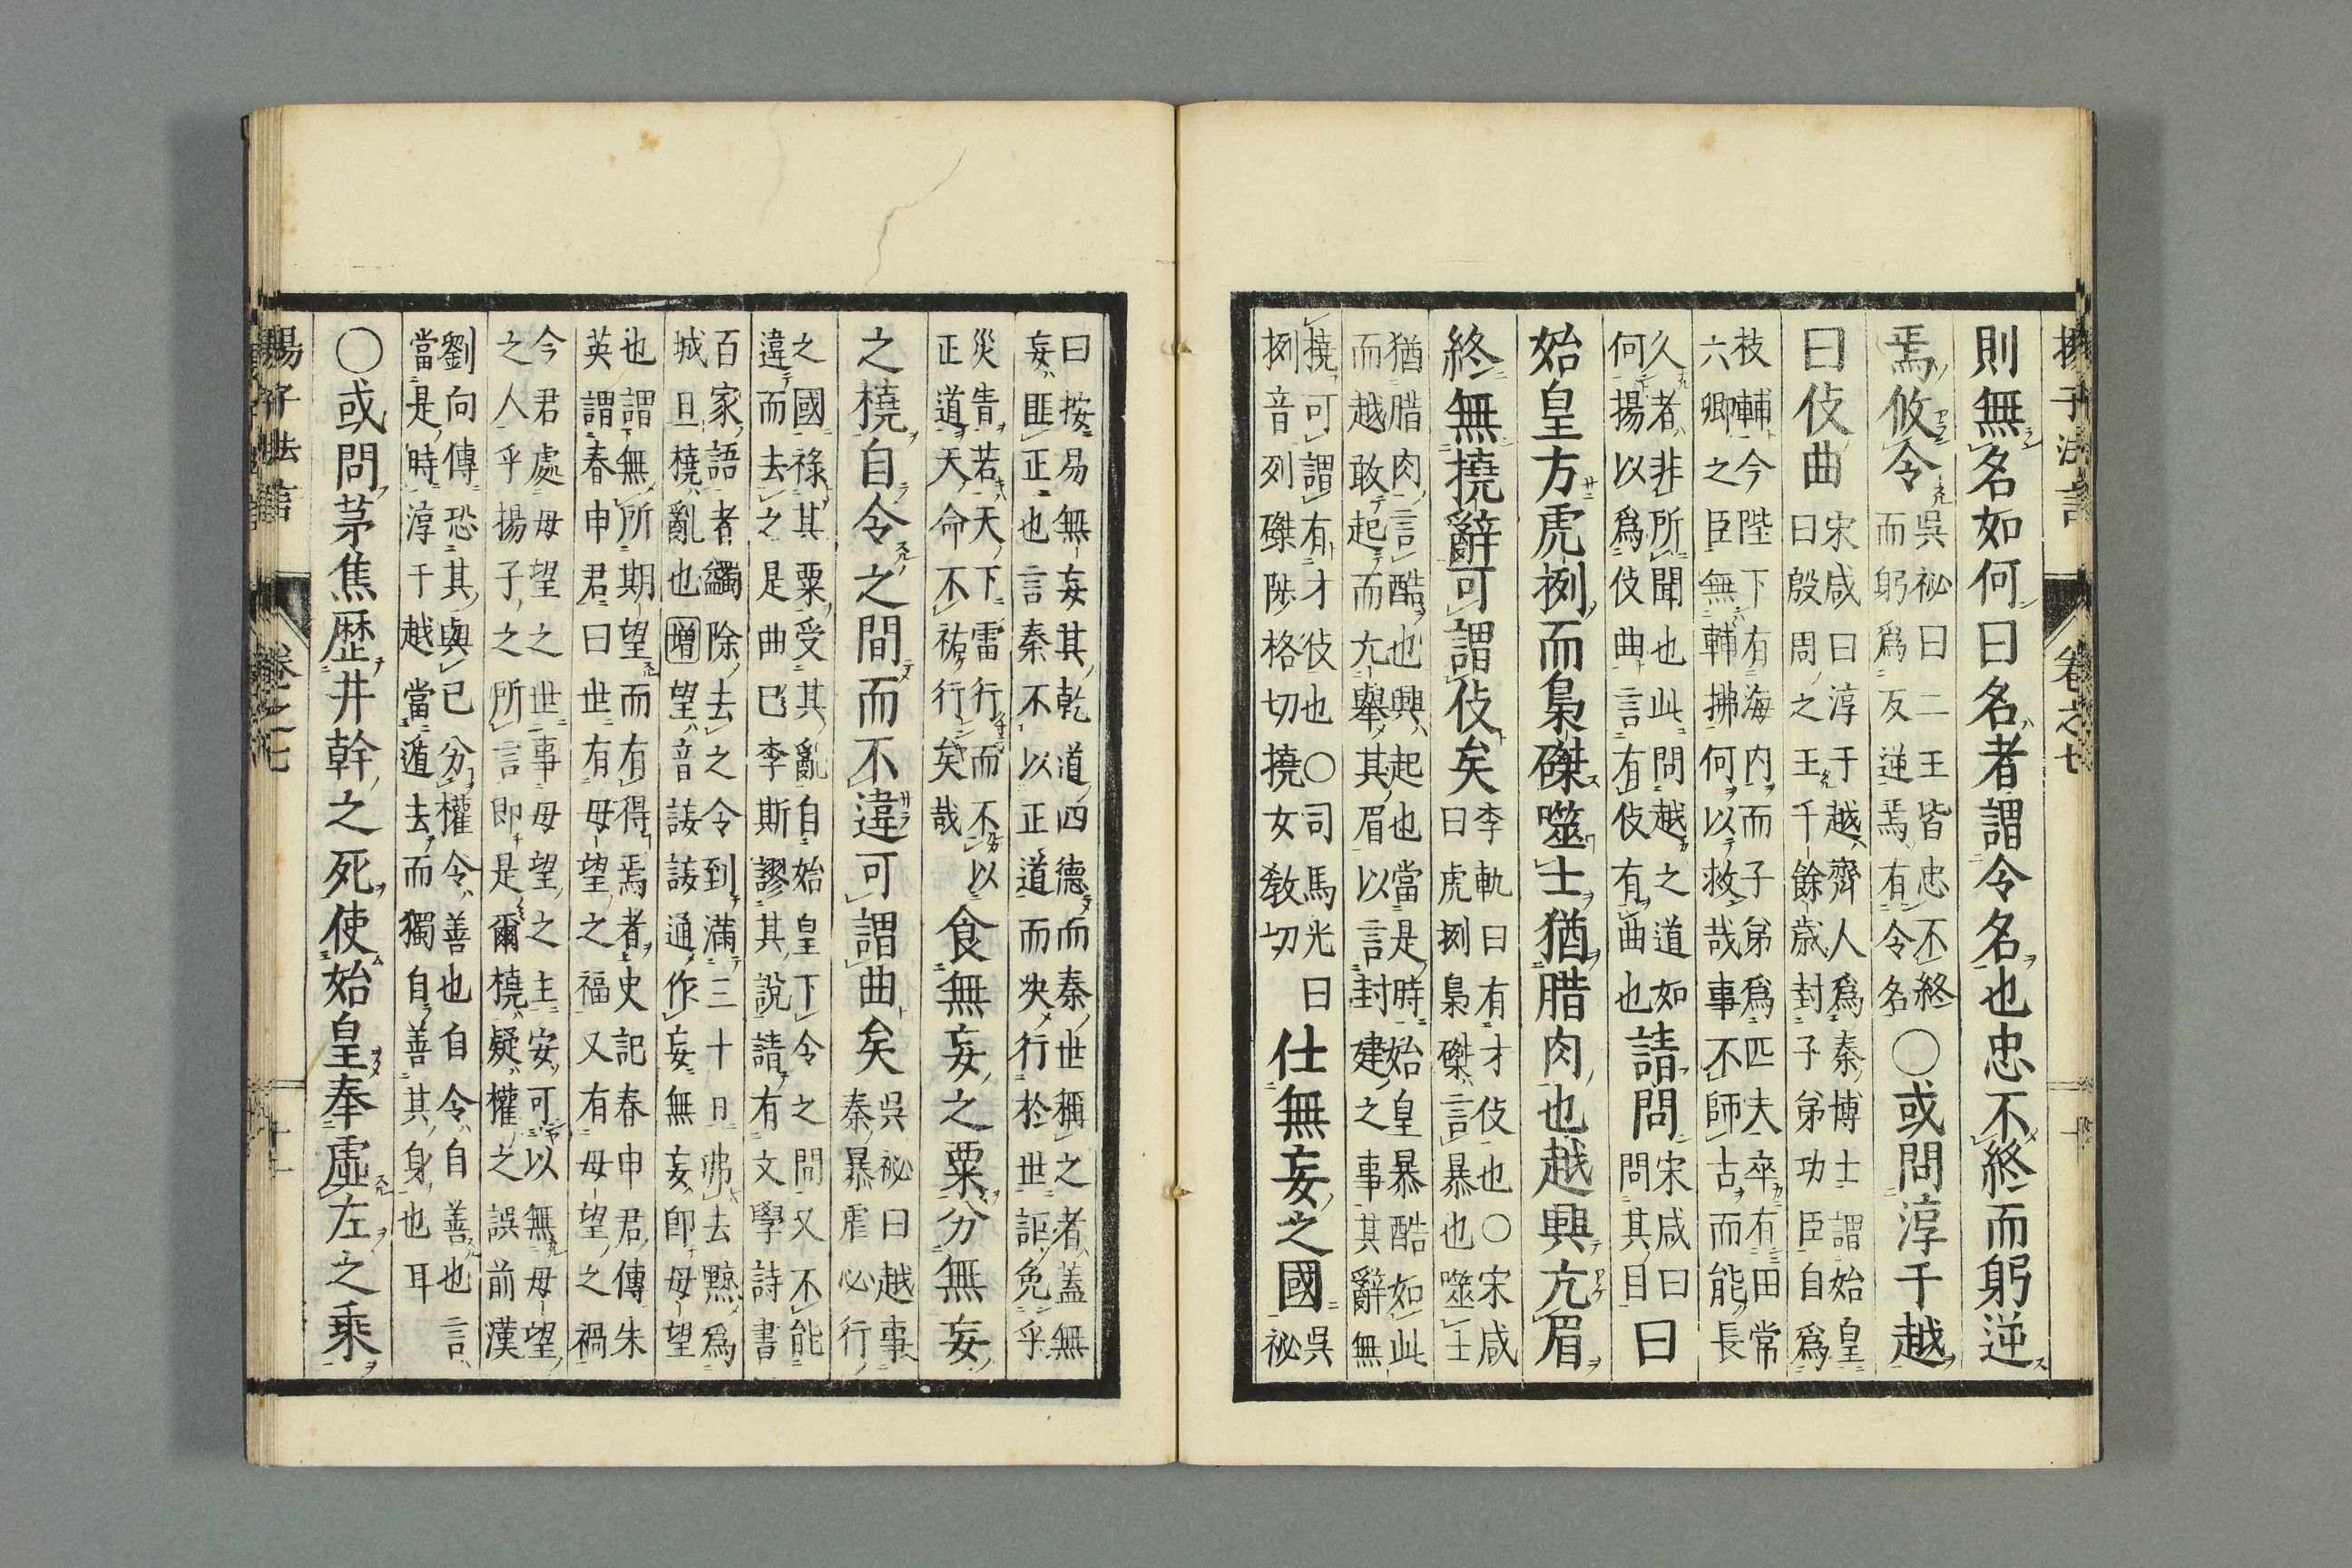 揚子法言
卷之七
十
則無名如何曰名者謂令名也忠不終而躬逆
焉攸令
吳祕曰二王皆忠不終
而躬爲反逆焉有令名
○或問淳于越
曰伎曲
宋咸曰淳于越齊人爲秦博士謂始皇
曰殷周之王千餘歲封子弟功臣自爲
枝輔今陛下有海內而子弟爲匹夫卒有田常
六卿之臣無輔拂何以救哉事不師古而能長
久者非所聞也此問越之道如
何揚以爲伎曲言有伎有曲也
請問
宋咸曰
問其目
曰
始皇方虎挒而梟磔噬士猶腊肉也越興亢眉
終無撓辭可謂伎矣
李軌曰有才伎也○宋咸
曰虎挒梟磔言暴也噬士
猶腊肉言酷也興起也當是時始皇暴酷如此
而越敢起而亢舉其眉以言封建之事其辭無
撓可謂有才伎也○司馬光曰
挒音列磔陟格切撓女教切
仕無妄之國
吳
祕
曰按易無妄其乾道四德而秦世稱之者蓋無
妄匪正也言秦不以正道而夬行於世詎免乎
災眚若天下雷行而不以
正道天命不祐行矣哉
食無妄之粟分無妄
之橈自令之間而不違可謂曲矣
吳祕曰越事
秦暴虐必行
之國祿其粟受其亂自始皇下令之問又不能
違而去之是曲已李斯謬其說請有文學詩書
百家語者蠲除去之令到滿三十日弗去黥爲
城旦橈亂也增望音諼諼通作妄無妄卽毋望
也謂無所期望而有得焉者史記春申君傳朱
英謂春申君曰世有毋望之福又有毋望之禍
今君處毋望之世事毋望之主安可以無毋望
之人乎揚子之所言卽是爾橈疑權之誤前漢
劉向傳恐其與已分權令善也自令自善也言
當是時淳于越當遁去而獨自善其身也耳
○或問茅焦歷井幹之死使始皇奉虛左之乘
揚子法言
卷之七
十一